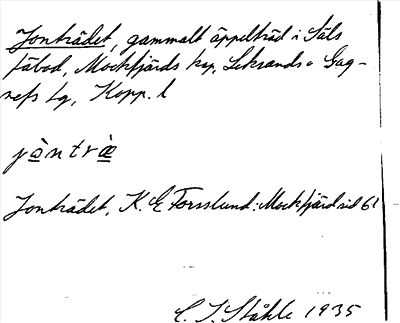 Jonträdet, gammalt äppelträd i Säls
fäbod, Mockfjärds ksp, Leksands o Gag-
nefs tg, Kopp. l
jòntræ̀
Jonträdet, K. E. Forsslund: Mockfjärd sid 61
E. I. Ståhle 1935